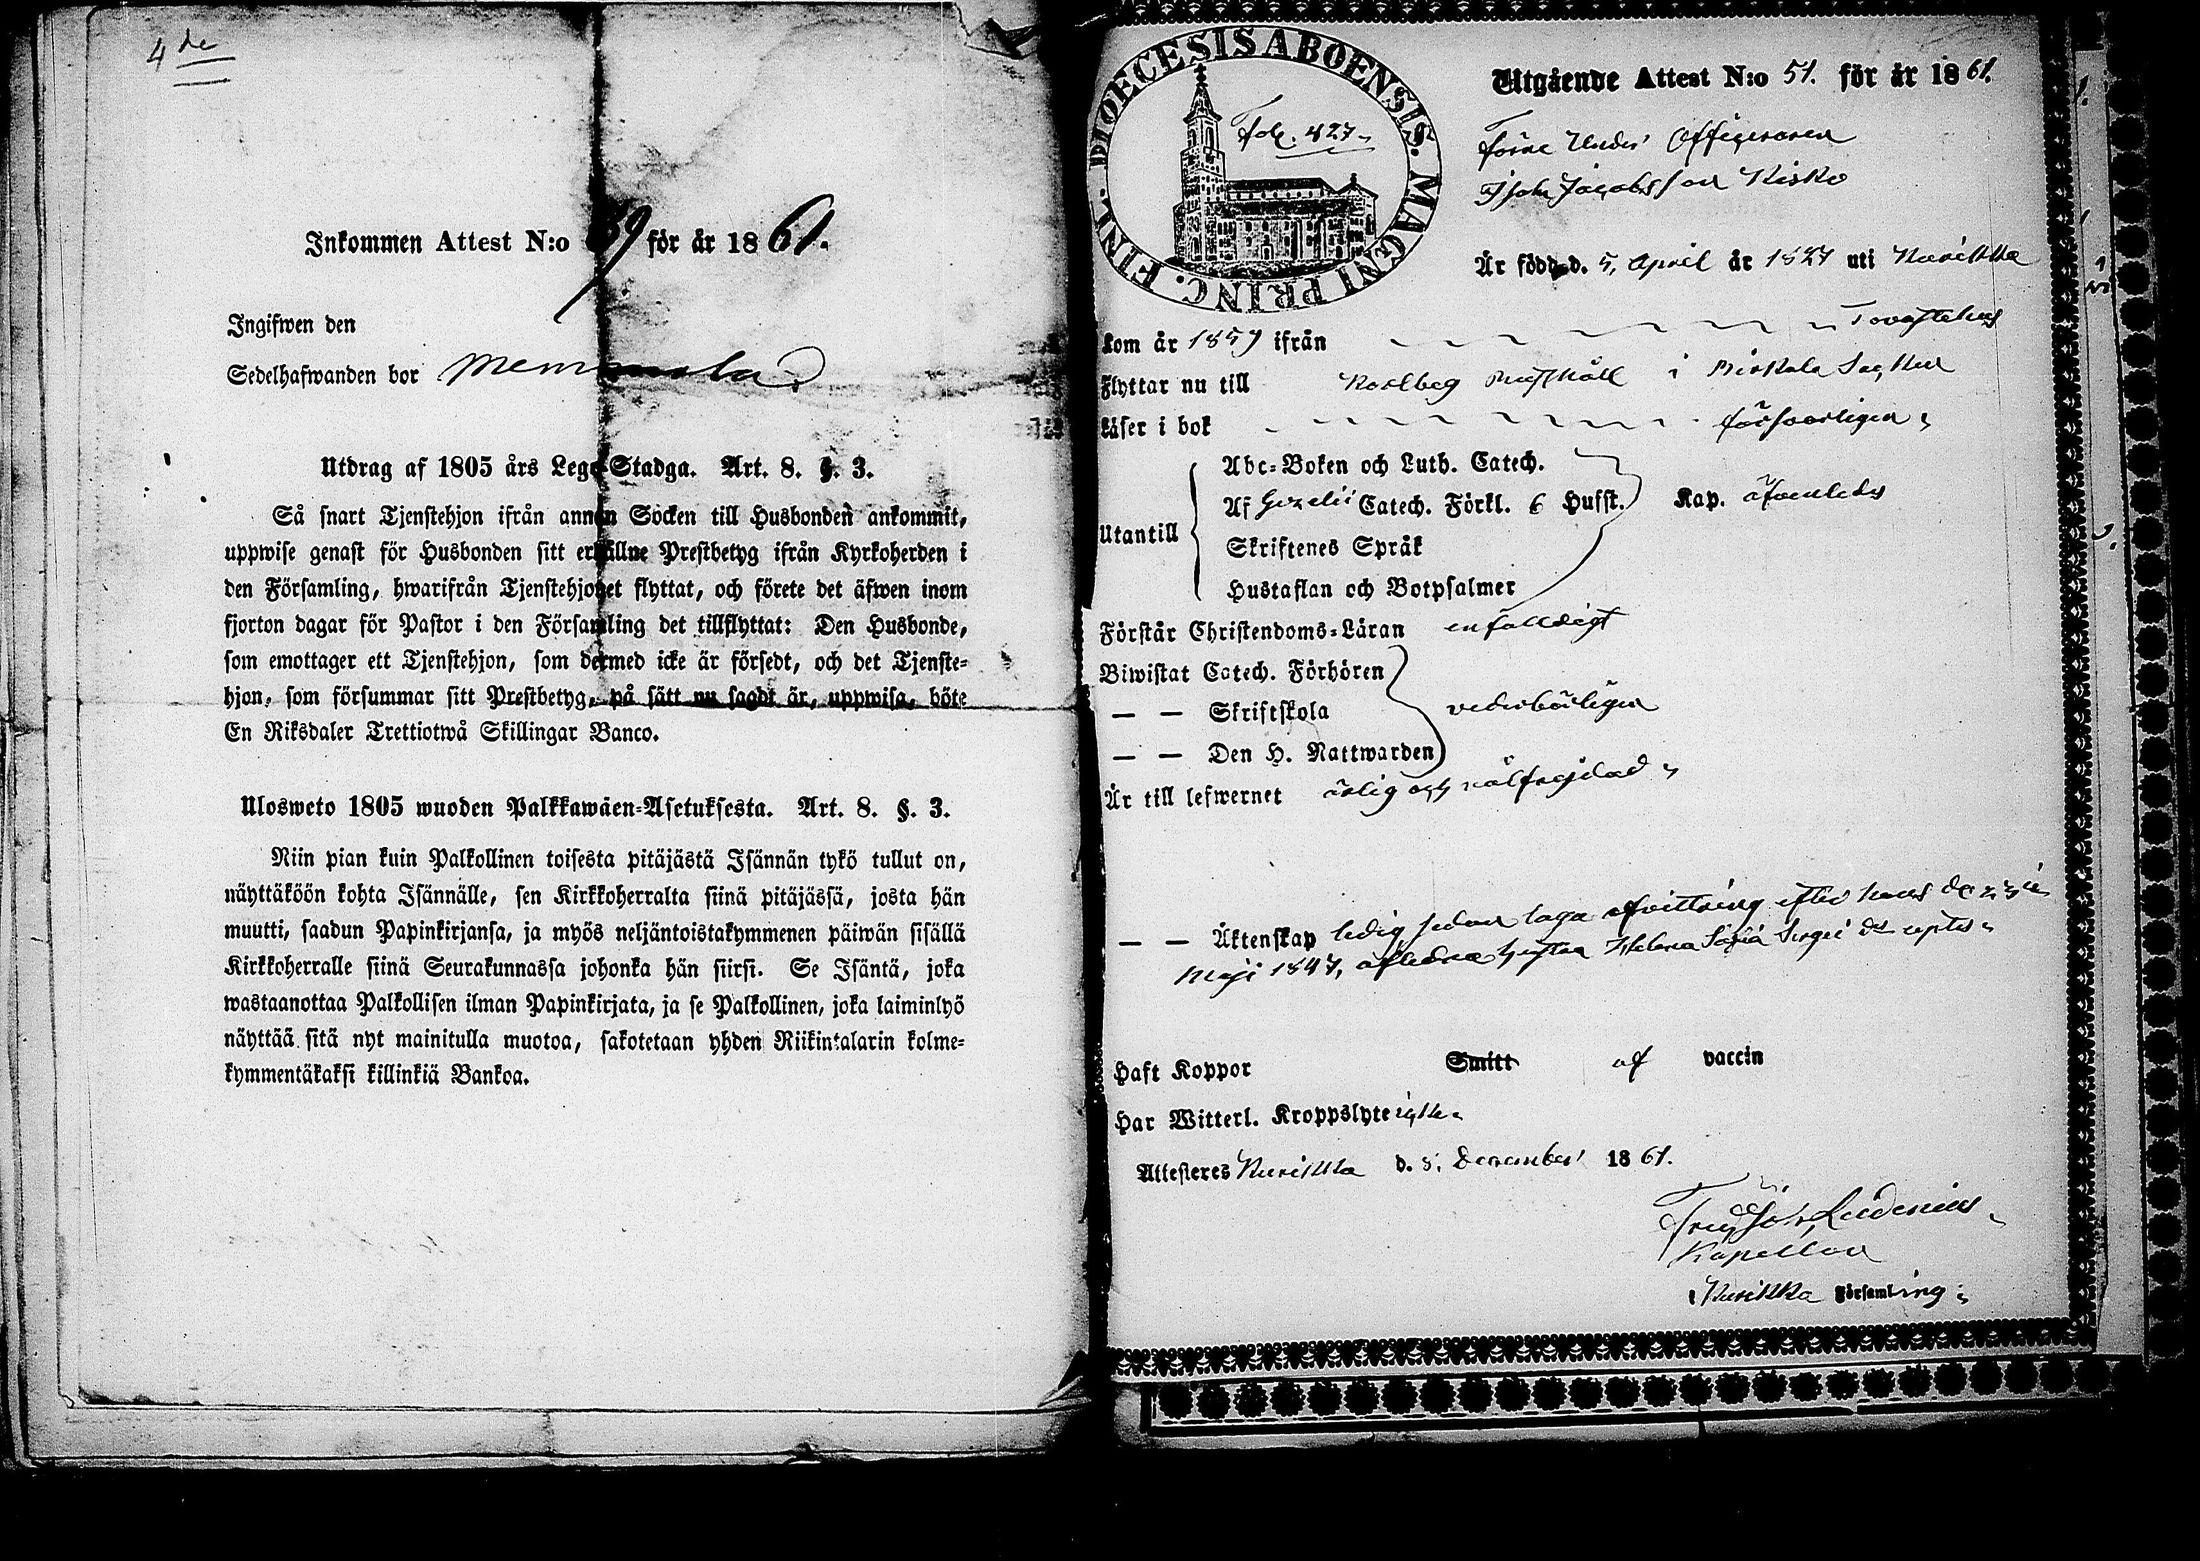 4 de
Inkommen Attest N:o 69 för år 1861.
Ingifwen den
Sedelhafwanden bor Memmola
Utdrag af 1805 års Lego-Stadga. Art. 8. §. 3.
Så snart Tjenstehjon ifrån annan Socken till Husbonden ankommit,
uppwise genast för Husbonden sitt erhållne Prestbetyg ifrån Kyrkoherden i
den Församling, hwarifrån Tjenstehjonet flyttat, och förete det äfwen inom
fjorton dagar för Pastor i den Församling det tillflyttat: Den Husbonde,
som emottager ett Tjenstehjon, som dermed icke är försedt, och det Tjenste-
hjon, som försummar sitt Prestbetyg, på sätt nu sagdt är, uppwisa, böte
En Riksdaler Trettiotwå Skillingar Banco.
Ulosweto 1805 wuoden Palkkawäen-Asetuksesta. Art. 8. §. 3.
Niin pian kuin Palkollinen toisesta pitäjästä Isännän tykö tullut on,
näyttäköön kohta Isännälle, sen Kirkkoherralta siinä pitäjässä, josta hän
muutti, saadun Papinkirjansa, ja myös neljäntoistakymmenen päiwän sisällä
Kirkkoherralle siinä Seurakunnassa johonka hän siirsi. Se Isäntä, joka
wastaanottaa Palkollisen ilman Papinkirjata, ja se Palkollinen, joka laiminlyö
näyttää sitä nyt mainitulla muotoa, sakotetaan yhden Riikintalarin kolme-
kymmentäkaksi killinkiä Bankoa.
DIOECESIS ABOENSIS. MAGNI PRINC. FINL.
Fol. 427
Utgående Attest N:o 51. för år 1861.
Förre Under Officeraren
Isak Jacobsson Kisko
Är född d. 5 April år 1827 uti Kurikka
Kom år 1859 ifrån Tavastehus
Flyttar nu till i Birkala Socken
Läser i bok försvarligen
Abc-Boken och Luth. Catech.
Utantill Af Gezelii Catech. Förkl. 6 Hufst. Kap. äfvenledes
Skriftenes Språk
Hustaflan och Botpsalmer
Förstår Christendoms-Läran enfaldigt
Biwistat Catech. Förhören
— — Skriftskola vederbörligen
— — Den H. Nattwarden
Är till lefwernet ärlig och välfrejdad
— — Äktenskap ledig sedan laga afvittring efter hans den 23
Maji 1847, aflidna hustru Helena Sofia
Haft Koppor Smitt af vaccin
Har Witterl. Kroppslyte icke
Attesteres Kurikka d. 5. December 1861.
Kapellan
i Kurikka Församling